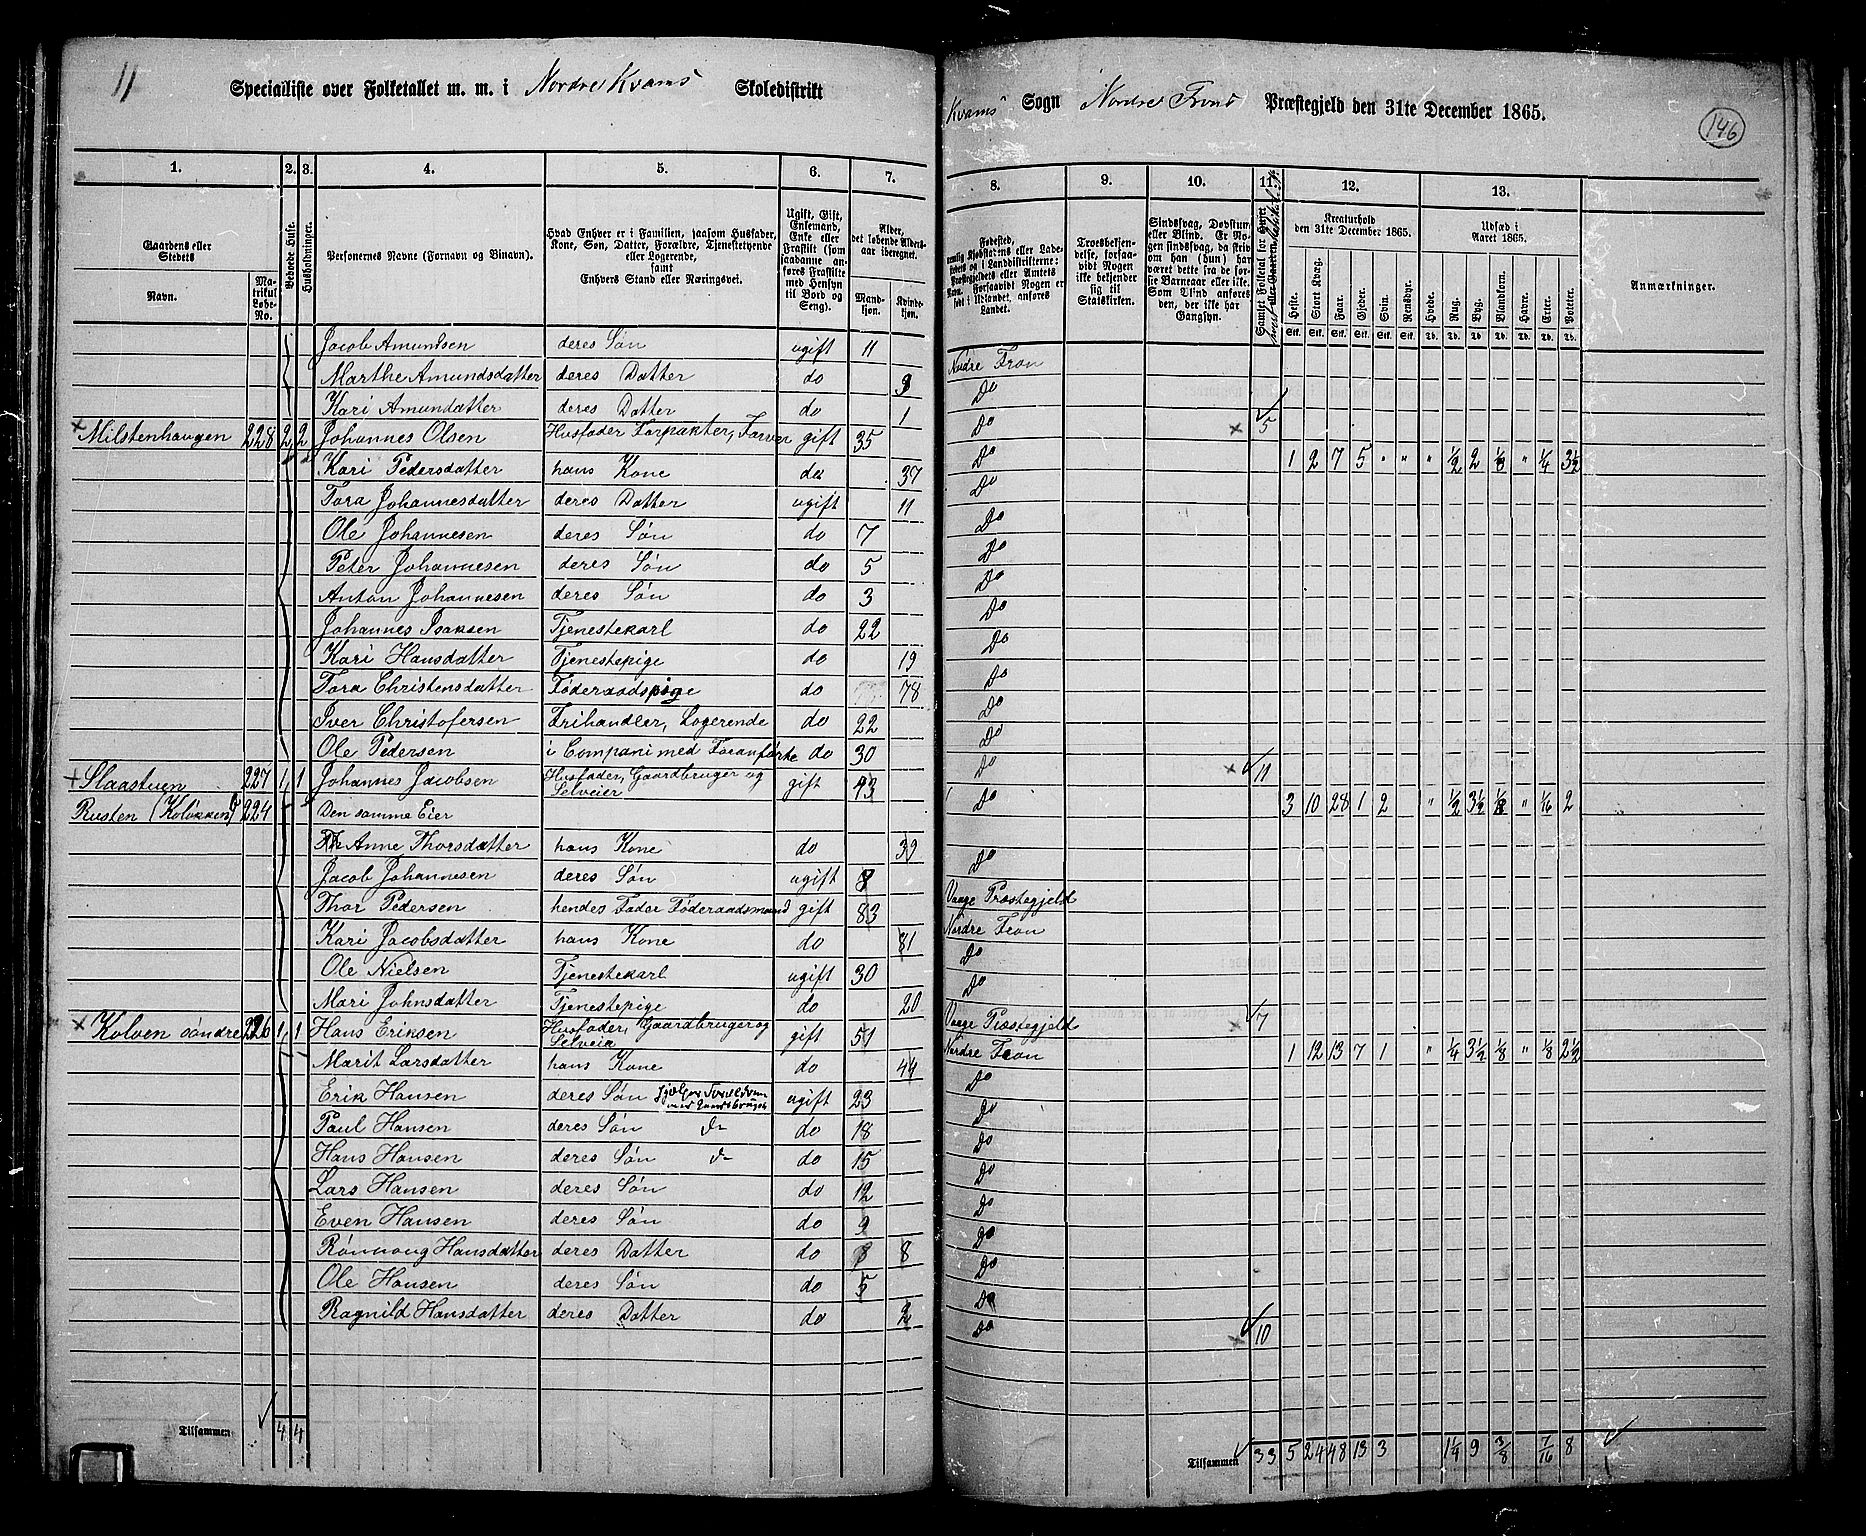 11
Specialliste over Folketallet m. m. i Nordre Kvams Skoledistrikt
Kvams Sogn Nordre Frons Præstegjeld den 31te December 1865.
146
1. 2. 3. 4. 5. 6. 7. 8. 9. 10. 11. 12. 13.
Gaardens eller Stedets
Navn.
Matrikul Løbe-No.
Beboede Huse.
Husholdninger.
Personernes Navne (Fornavn og Binavn).
Hvad Enhver er i Familien, saasom Husfader, Kone, Søn, Datter, Forældre, Tjenestetyende eller Logerende, samt Enhvers Stand eller Næringsvei.
Ugift, Gift, Enkemand, Enke eller Fraskilt (som saadanne anføres Fraskilte med Hensyn til Bord og Seng).
Alder, det løbende Aldersaar iberegnet.
Mandkjøn. Kvindekjøn.
Fødested,
Troesbekjendelse, forsaavidt Nogen ikke bekjender sig til Statskirken.
Sindssvag, Døvstum eller Blind. Er Nogen sindssvag, da skriv om han (hun) har været dette fra de første Barneaar eller ikke. Som Blind anføres den, der ikke har Gangsyn.
Kreaturhold den 31te December 1865.
Heste. Stort Kvæg. Faar. Gjeder. Svin. Rensdyr.
Udsæd i Aaret 1865.
Hvede. Rug. Byg. Blandkorn. Havre. Erter. Poteter.
Anmærkninger.
Jacob Amundsen deres Søn ugift 11 Nordre Fron
Marthe Amundsdatter deres Datter do 3 Do
Kari Amundatter deres Datter do 1 Do 5
Milstenhaugen 228 2 2 Johannes Olsen Husfader Forpakter, Farver gift 35 Do 1 2 7 5 " " " 1/2 2 1/8 " 1/4 3 1/2
Kari Pedersdatter hans Kone do 37 Do
Tora Johannesdatter deres Datter ugift 11 Do
Ole Johannesen deres Søn do 7 Do
Peter Johannesen deres Søn do 5 Do
Anton Johannesen deres Søn do 3 Do
Johannes Isaksen Tjenestekarl do 22 Do
Kari Hansdatter Tjenestepige do 19 Do
Tora Christensdatter Føderaadspige do 78 Do
Iver Christofersen Frihandler, Logerende do 22 Do
Ole Pedersen i Compani med Foranførte do 30 Do 11
Slaastuen 227 1 1 Johannes Jacobsen Husfader, Gaardbruger og Selveier gift 43 Do 3 10 28 1 2 " 1/2 3 1/2 1/8 " 1/16 2
Rusten (Koløkken) 224 Den samme Eier
Anne Thorsdatter hans Kone do 39 Do
Jacob Johannesen deres Søn ugift 8 Vaage Præstegjeld
Thor Pedersen hendes Fader Føderaadsmand gift 83 Nordre Fron
Kari Jacobsdatter hans Kone do 81 Do
Ole Nielsen Tjenestekarl ugift 30 Do
Mari Johnsdatter Tjenestepige do 20 Vaage Præstegjeld 7
Kolven søndre 226 1 1 Hans Eriksen Husfader, Gaardbruger og Selveier gift 51 Nordre Fron 1 12 13 7 1 " 1/4 3 1/2 1/8 " 1/8 2 1/2
Marit Larsdatter hans Kone do 44 Do
Erik Hansen deres Søn hjælper Forældrene med Gaardsbruget ugift 23 Do
Paul Hansen deres Søn do 18 Do
Hans Hansen deres Søn do 15 Do
Lars Hansen deres Søn do 12 Do
Even Hansen deres Søn do 9 Do
Rønnoug Hansdatter deres Datter do 8 Do
Ole Hansen deres Søn do 5 Do
Ragnild Hansdatter deres Datter do 2 Do 10
Tilsammen 4 4
Tilsammen 33 5 24 48 13 3 1 1/4 9 3/8 7/16 8